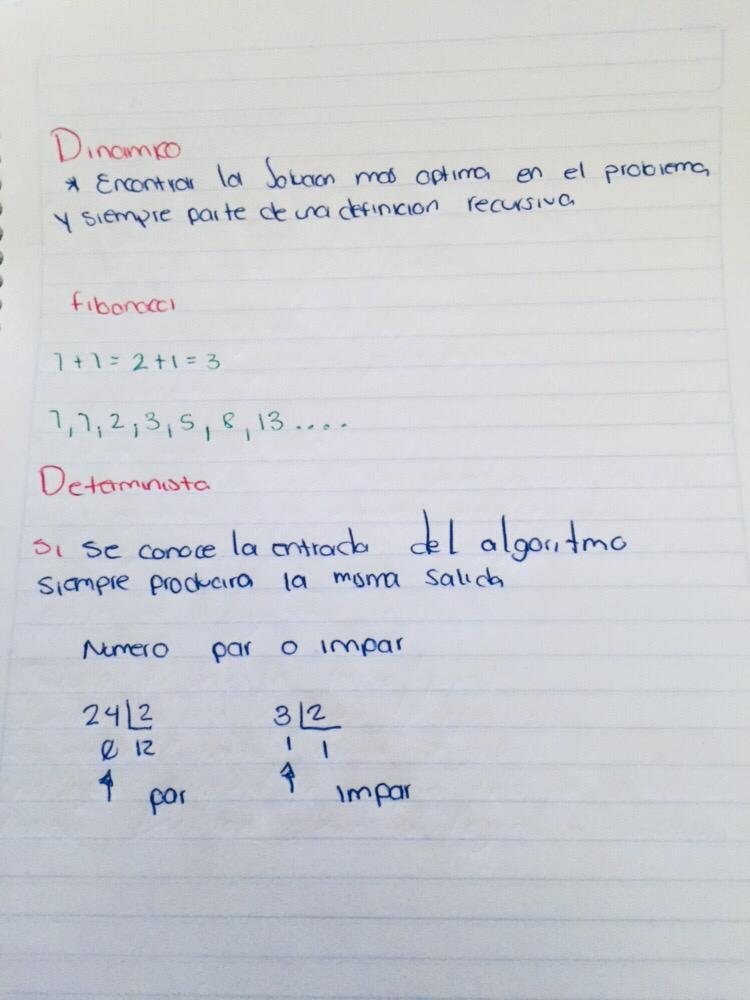 Dinamico
* Encontrar la Solucion mas optima en el problema
y siempre parte de una definicion recursiva
fibonacci
1 + 1 = 2 + 1 = 3
1, 1, 2, 3, 5, 8, 13 ....
Determinista
Si se conoce la entrada del algoritmo
siempre producira la misma salida
Numero par o impar
24 2 3 2
0 12 1 1
par impar